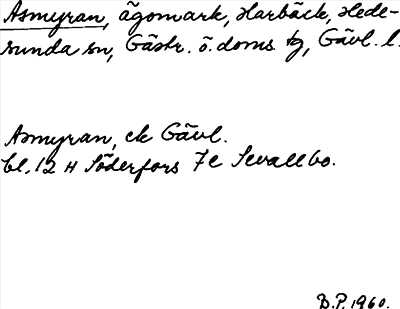 Asmyran, ägomark, Harbäck, Hede-
sunda sn, Gästr. ö. doms tg, Gävl. l.
Asmyran, ek Gävl.
bl. 12 H Söderfors 7e Sevallbo.
B.P. 1960.